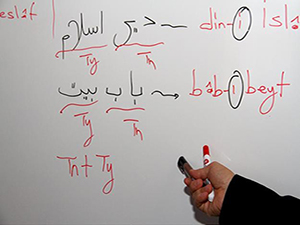 eslâf
دين اسلام ~ din-i islâ
Ty Tn
باب بيت ~ bâb-ı beyt
Ty Tn
Tn + Ty